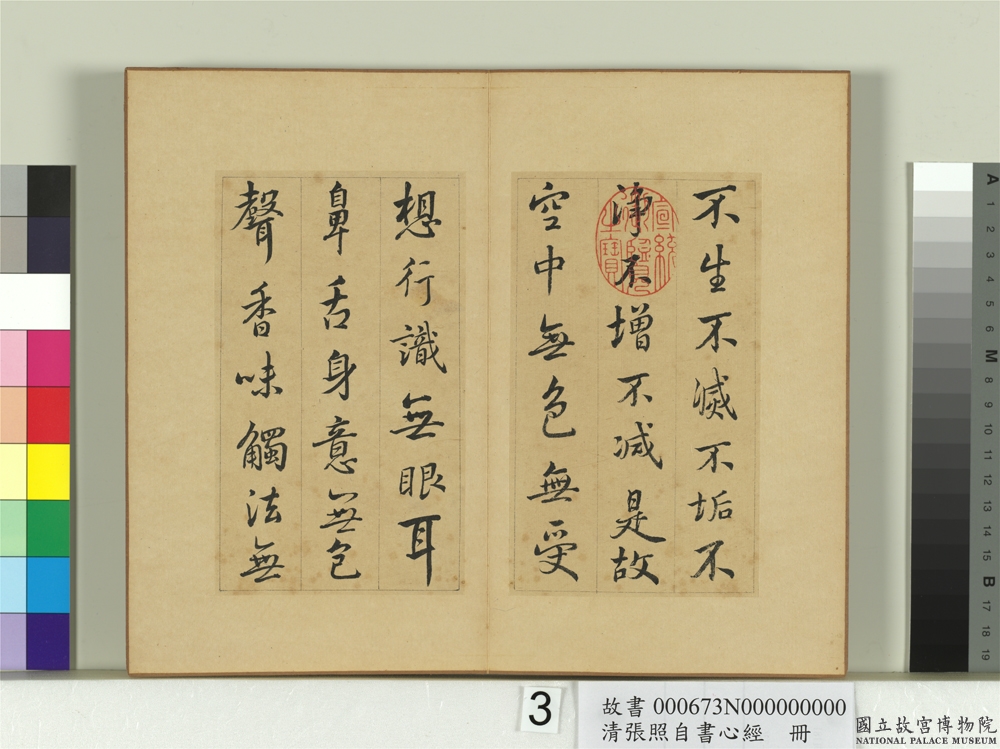 不生不滅不垢不
淨不增不減是故
空中無色無受
想行識無眼耳
鼻舌身意無色
聲香味觸法無
宣統御覽之寶
3
故書 000673N000000000
清張照自書心經 冊
國立故宮博物院
NATIONAL PALACE MUSEUM
A
1
2
3
4
5
6
M
8
9
10
11
12
13
14
15
B
17
18
19